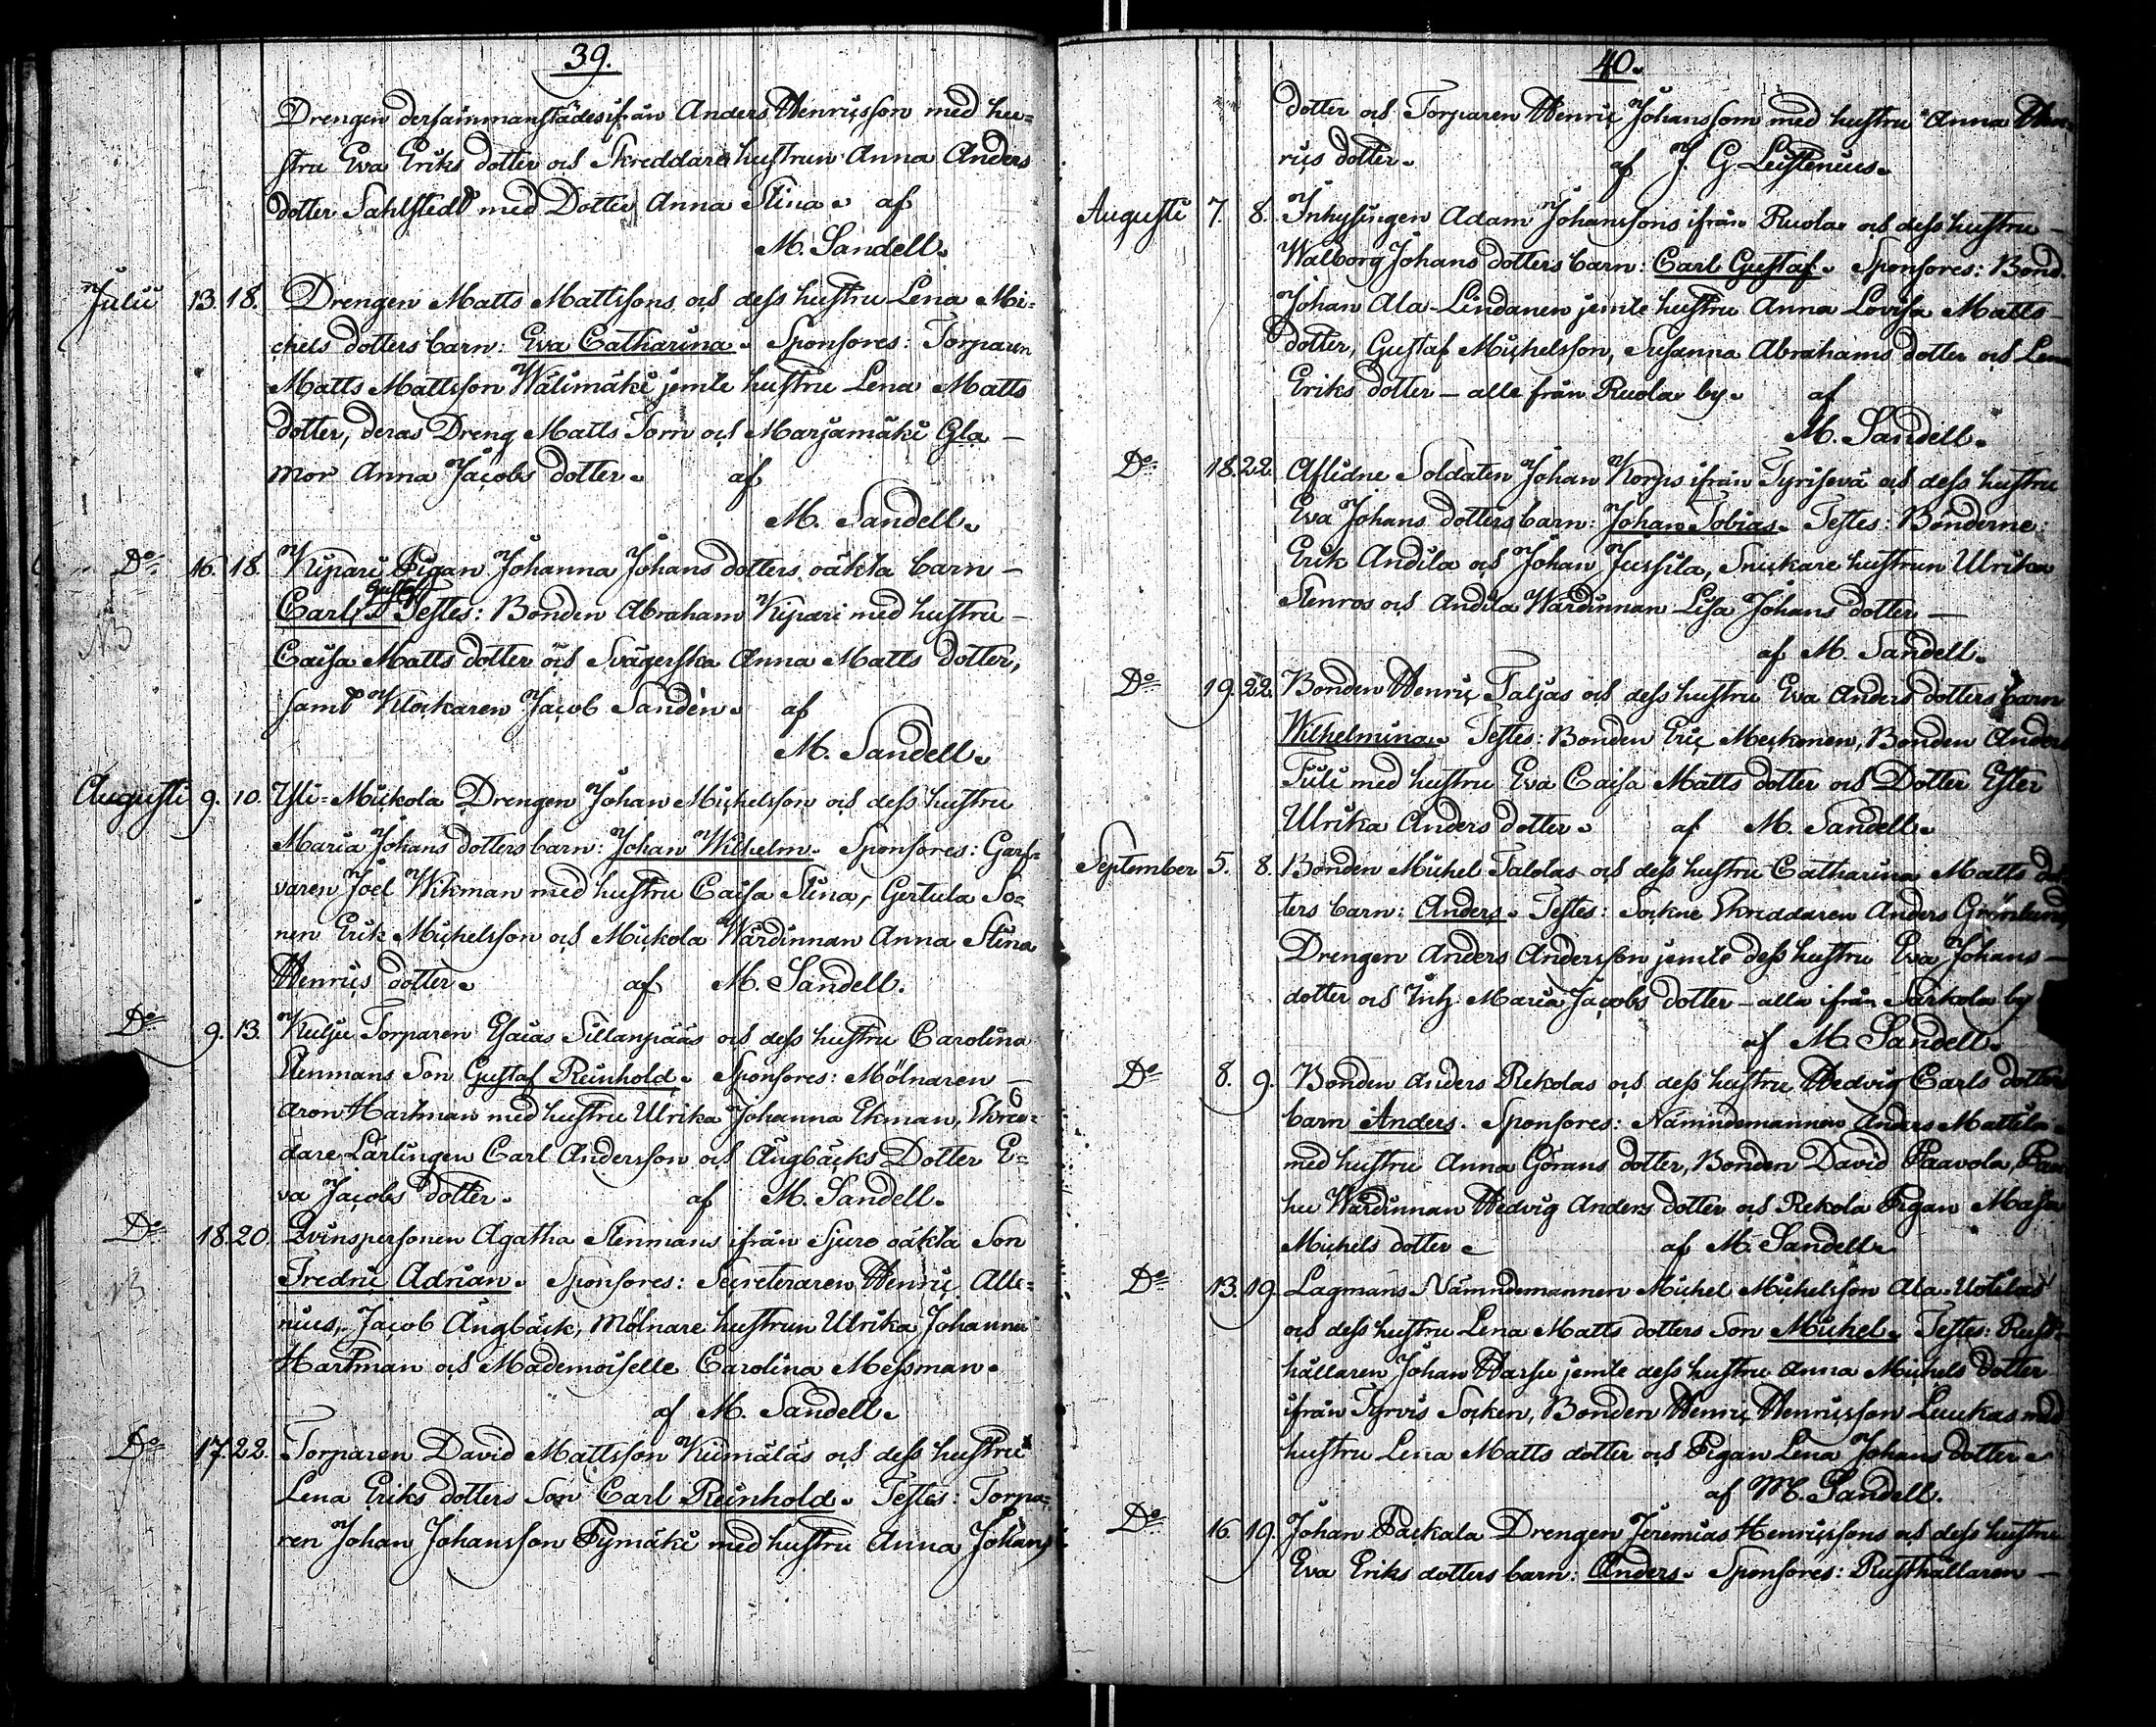 39.
Drengen dersammanstädesifrån Anders Henricsson med hu-
stru Eva Eriks dotter och Skreddare hustrun Anna Anders
dotter Sahlstedt med Dotter Anna Stina. af
M. Sandell.
Julii 13. 18. Drengen Matts Mattssons och dess hustru Lena Mi-
chels dotters barn: Eva Catharina. Sponsores: Torparen
Matts Mattsson Wälimäki jemte hustru Lena Matts
dotter, deras Dreng Matts Torn och Marjamäki Gla-
mor Anna Jacobs dotter. af
M. Sandell.
Do 16. 18. Kipari Pigan Johanna Johans dotters oäkta barn -
NB Carl Gustaf. Testes: Bonden Abraham Kipari med hustru -
Caisa Matts dotter och Svägerska Anna Matts dotter,
samt Klockaren Jacob Sandén. af
M. Sandell.
Augusti 9. 10. Yli-Mickola Drengen Johan Michelsson och dess hustru
Maria Johans dotters barn: Johan Wilhelm. Sponsores: Garf-
varen Joel Wikman med hustru Caisa Stina, Gertula So-
nen Erik Michelsson och Mickola Wärdinnan Anna Stina
Henrics dotter. af M. Sandell.
Do 9. 13. Kulju Torparen Esaias Sillanpääs och dess hustru Carolina
Stenmans Son Gustaf Reinhold. Sponsores: Mölnaren -
Aron Hartman med hustru Ulrika Johanna Ekman, Skred-
dare Lärlingen Carl Andersson och Ängbäcks Dotter E-
va Jacobs dotter. af M. Sandell.
Do 18. 20. Qvinspersonen Agatha Stenmans ifrån Sjuro oäkta Son
NB Fredric Adrian. Sponsores: Secreteraren Henric Alle-
nius, Jacob Ängbäck, Mölnare hustrun Ulrika Johanna
Hartman och Mademoiselle Carolina Messman.
af M. Sandell.
Do 17. 22. Torparen David Mattsson Kiimäläs och dess hustru
Lena Eriks dotters Son Carl Reinhold. Testes: Torpa-
ren Johan Johansson Pymäki med hustru Anna Johans
40.
dotter och Torparen Henric Johansson med hustru Anna Hen-
rics dotter. af J. G. Leistenius.
Augusti 7. 8. Inhysingen Adam Johanssons ifrån Ruola och dess hustru -
Walborg Johans dotters barn: Carl Gustaf. Sponsores: Bond.
Johan Ala-Lindanen jemte hustru Anna Lovisa Matts-
dotter, Gustaf Michelsson, Susanna Abrahams dotter och Lena
Eriks dotter - alle från Ruola by. af
M. Sandell.
Do 18. 22. Aflidne Soldaten Johan Korps ifrån Tyrisevä och dess hustru
Eva Johans dotters barn: Johan Tobias. Testes: Bönderne:
Erik Andila och Johan Jussila, Snickare hustrun Ulrika
Stenros och Andila Wärdinnan Lisa Johans dotter -
af M. Sandell.
Do 19. 22. Bonden Henric Taljas och dess hustru Eva Anders dotters barn
Wilhelmina. Testes: Bonden Eric Meckonen, Bonden Anders
Tuli med hustru Eva Caisa Matts dotter och Dotter Ester
Ulrika Anders dotter. af M. Sandell.
September 5. 8. Bonden Michel Talolas och dess hustru Catharina Matts dot-
ters barn: Anders. Testes: Sockne Skreddaren Anders Grönlund,
Drengen Anders Andersson jemte dess hustru Eva Johans-
dotter och Inh. Maria Jacobs dotter - alla ifrån Sarkola by
af M. Sandell.
Do 8. 9. Bonden Anders Rekolas och dess hustru Hedvig Carls dotters
barn Anders. Sponsores: Nämndemannen Anders Mattila
med hustru Anna Görans dotter, Bonden David Paavola,
hu Wärdinnan Hedvig Anders dotter och Rekola Pigan Maja
Michels dotter. af M. Sandell.
Do 13. 19. Lagmans Nämndemannen Michel Michelsson Ala-Uotilas
och dess hustru Lena Matts dotters Son Michel. Testes: Rust-
hållaren Johan Harju jemte dess hustru Anna Michels dotter
ifrån Tyrvis Socken, Bonden Henric Henricsson Luukas med
hustru Lena Matts dotter och Pigan Lena Johans dotter.
af M. Sandell.
Do 16. 19. Johan Packala Drengen Jeremias Henricssons och dess hustru
Eva Eriks dotters barn: Anders. Sponsores: Rusthållaren -